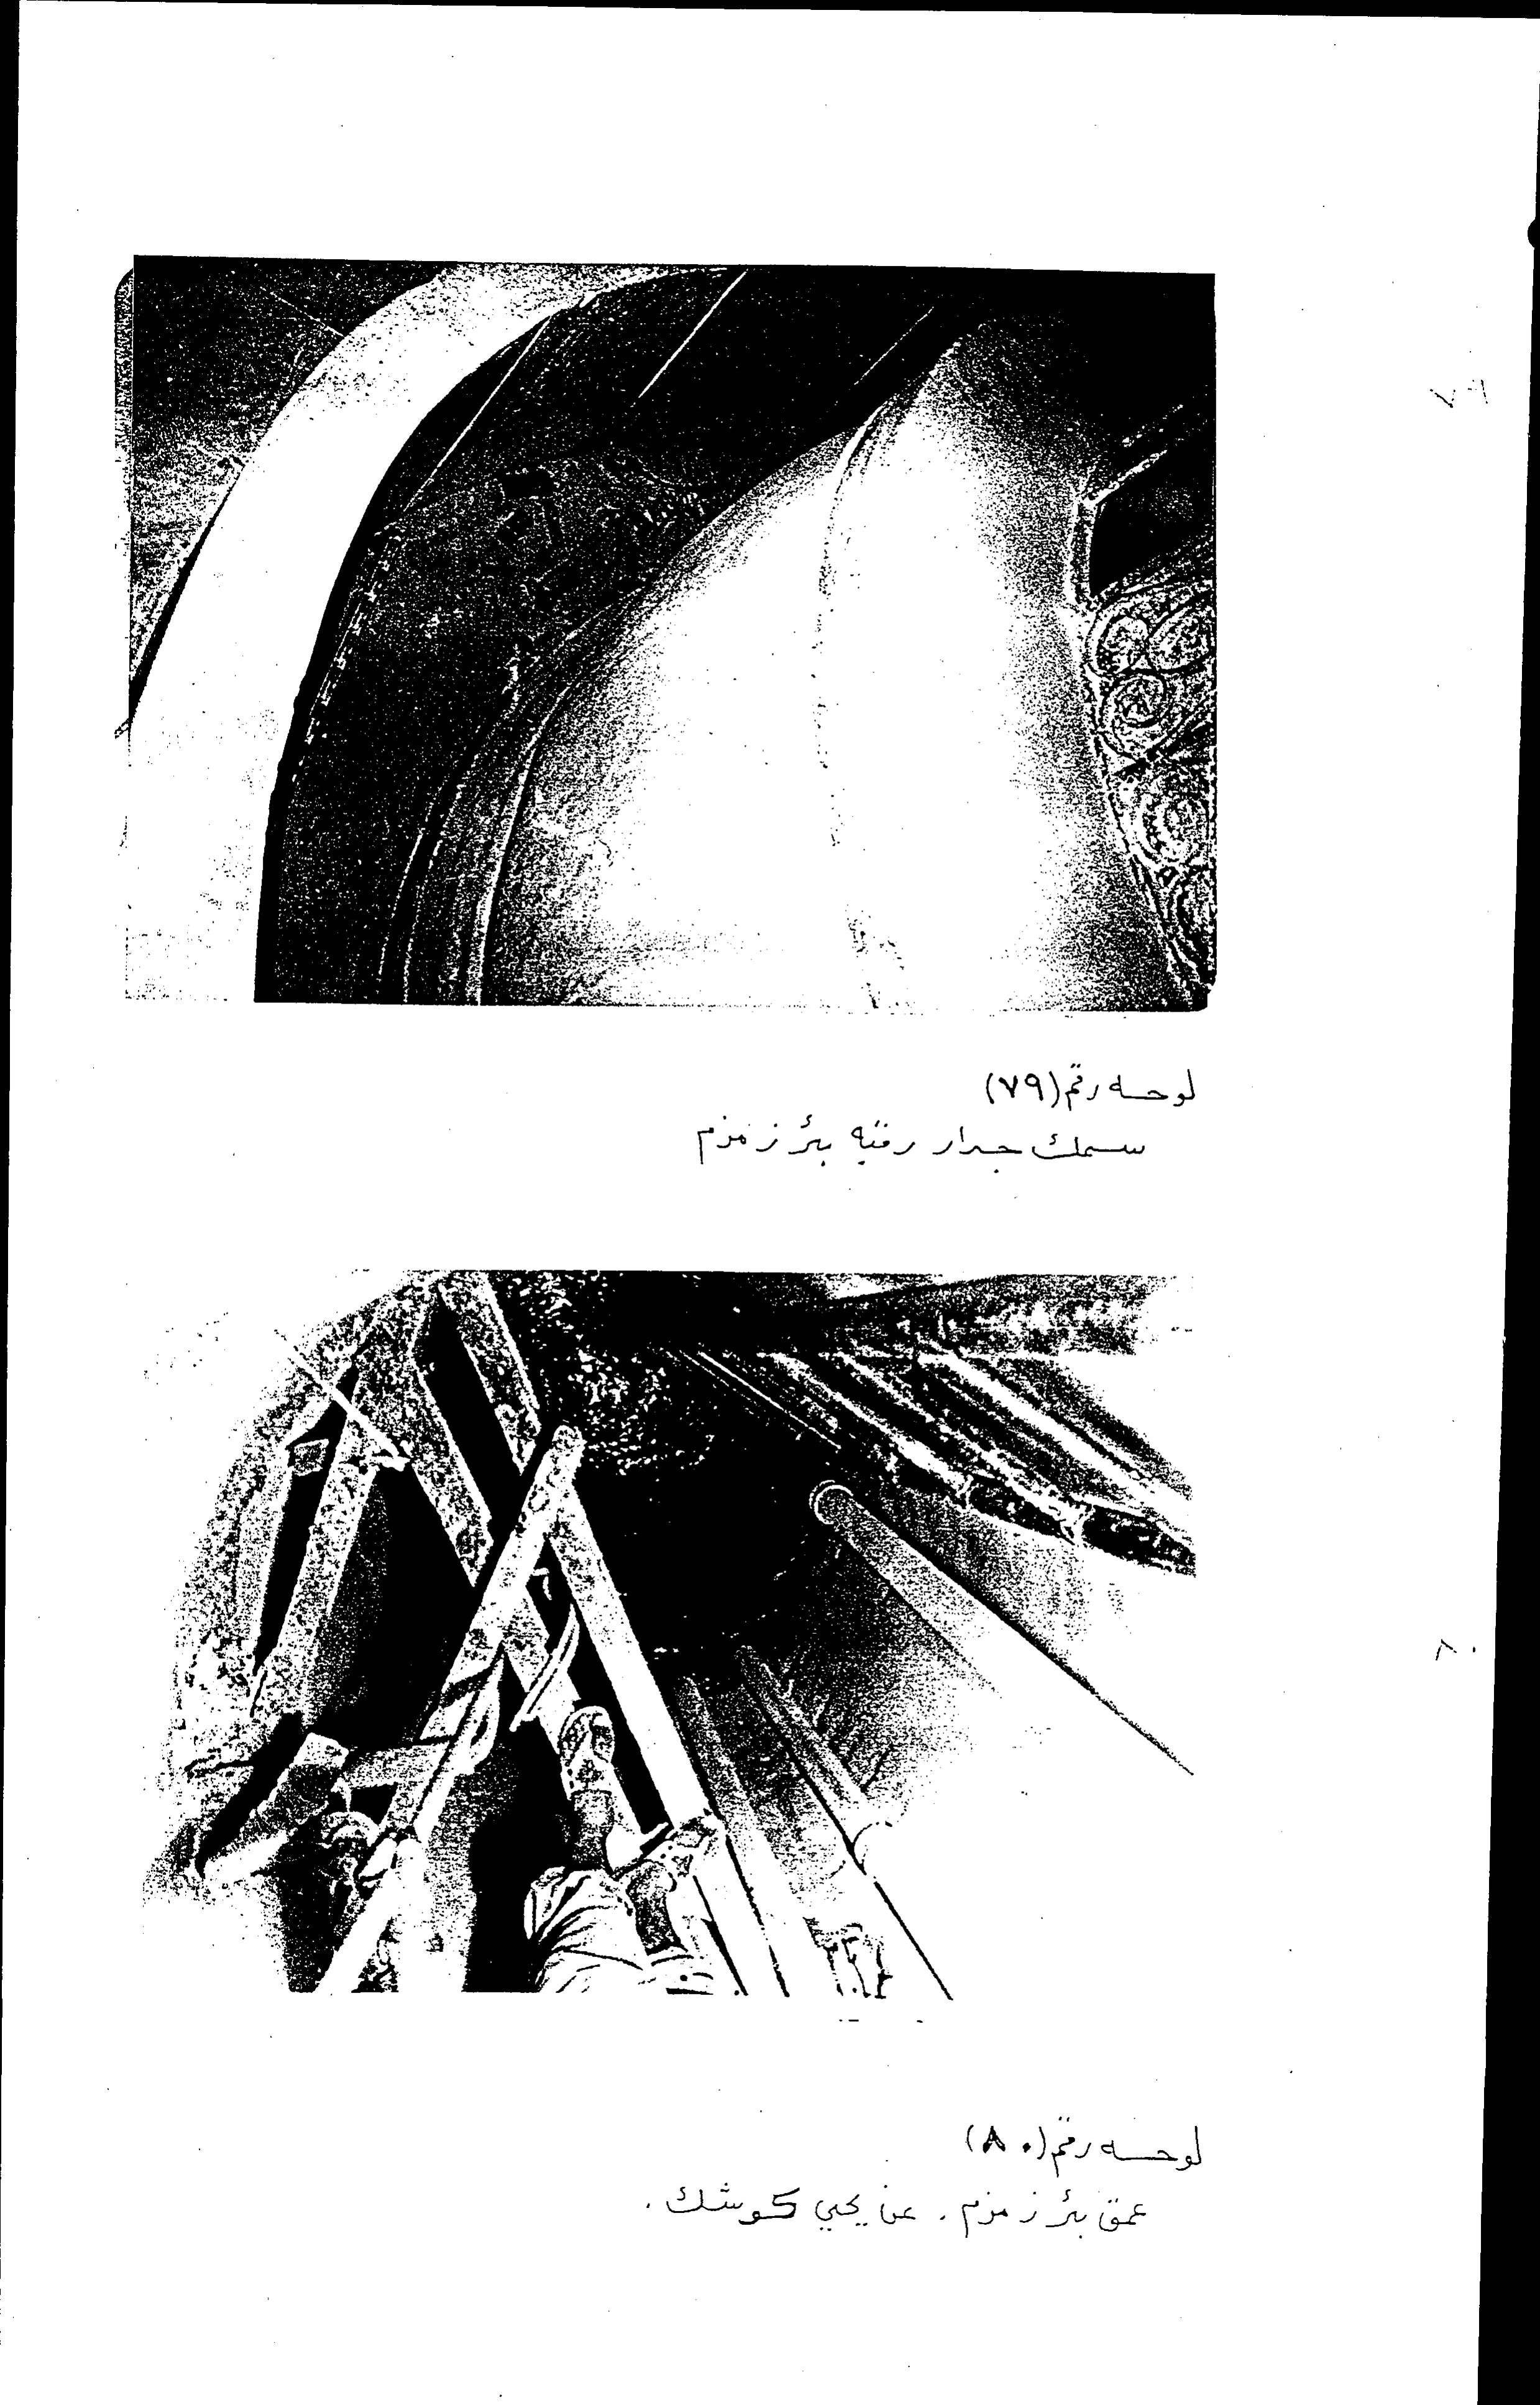 لوحه رقم (٧٩)
سمك جدار رقبة بئر زمزم
لوحه رقم (٨٠)
عمق بئر زمزم . عن يحيي كوشك .